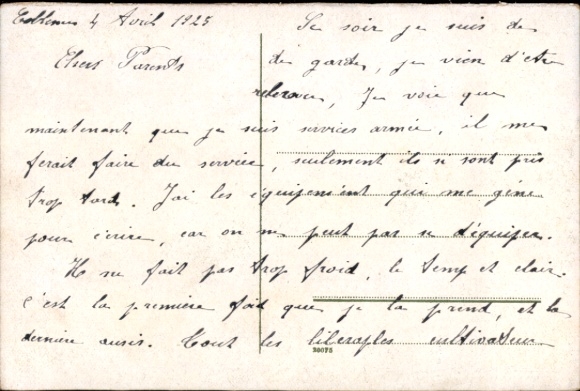 Coblence 4 Avril 1925
Chers Parents
Se soir je suis de
de garde, je vien d'etre
relever, Je voie que
maintenant que je suis services armée, il me
ferait faire du service, seulement ils si sont pris
trop tard. J'ai les équipement qui me gêne
pour écrire, car on ne peut pas se d'équiper.
Il ne fait pas trop froid, le temp et clair.
c'est la première foid que je la prend, et la
dernière aussi. Tout les cultivateur
39075